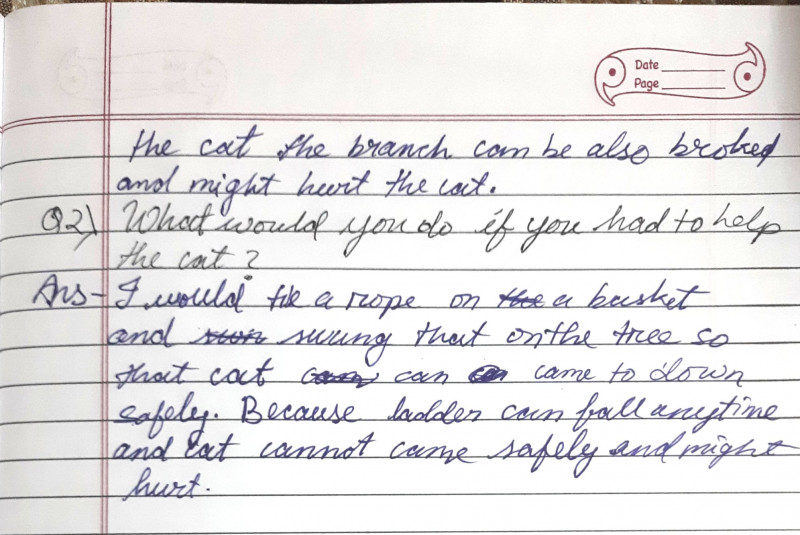 Date
Page
the cat the branch can be also broked
and might hurt the cat.
Q2) What would you do if you had to help
the cat?
Ans- I would tie a rope on the a busket
and swing that on the tree so
that cat can came to down
safely. Because ladder can fall anytime
and cat cannot came safely and might
hurt.